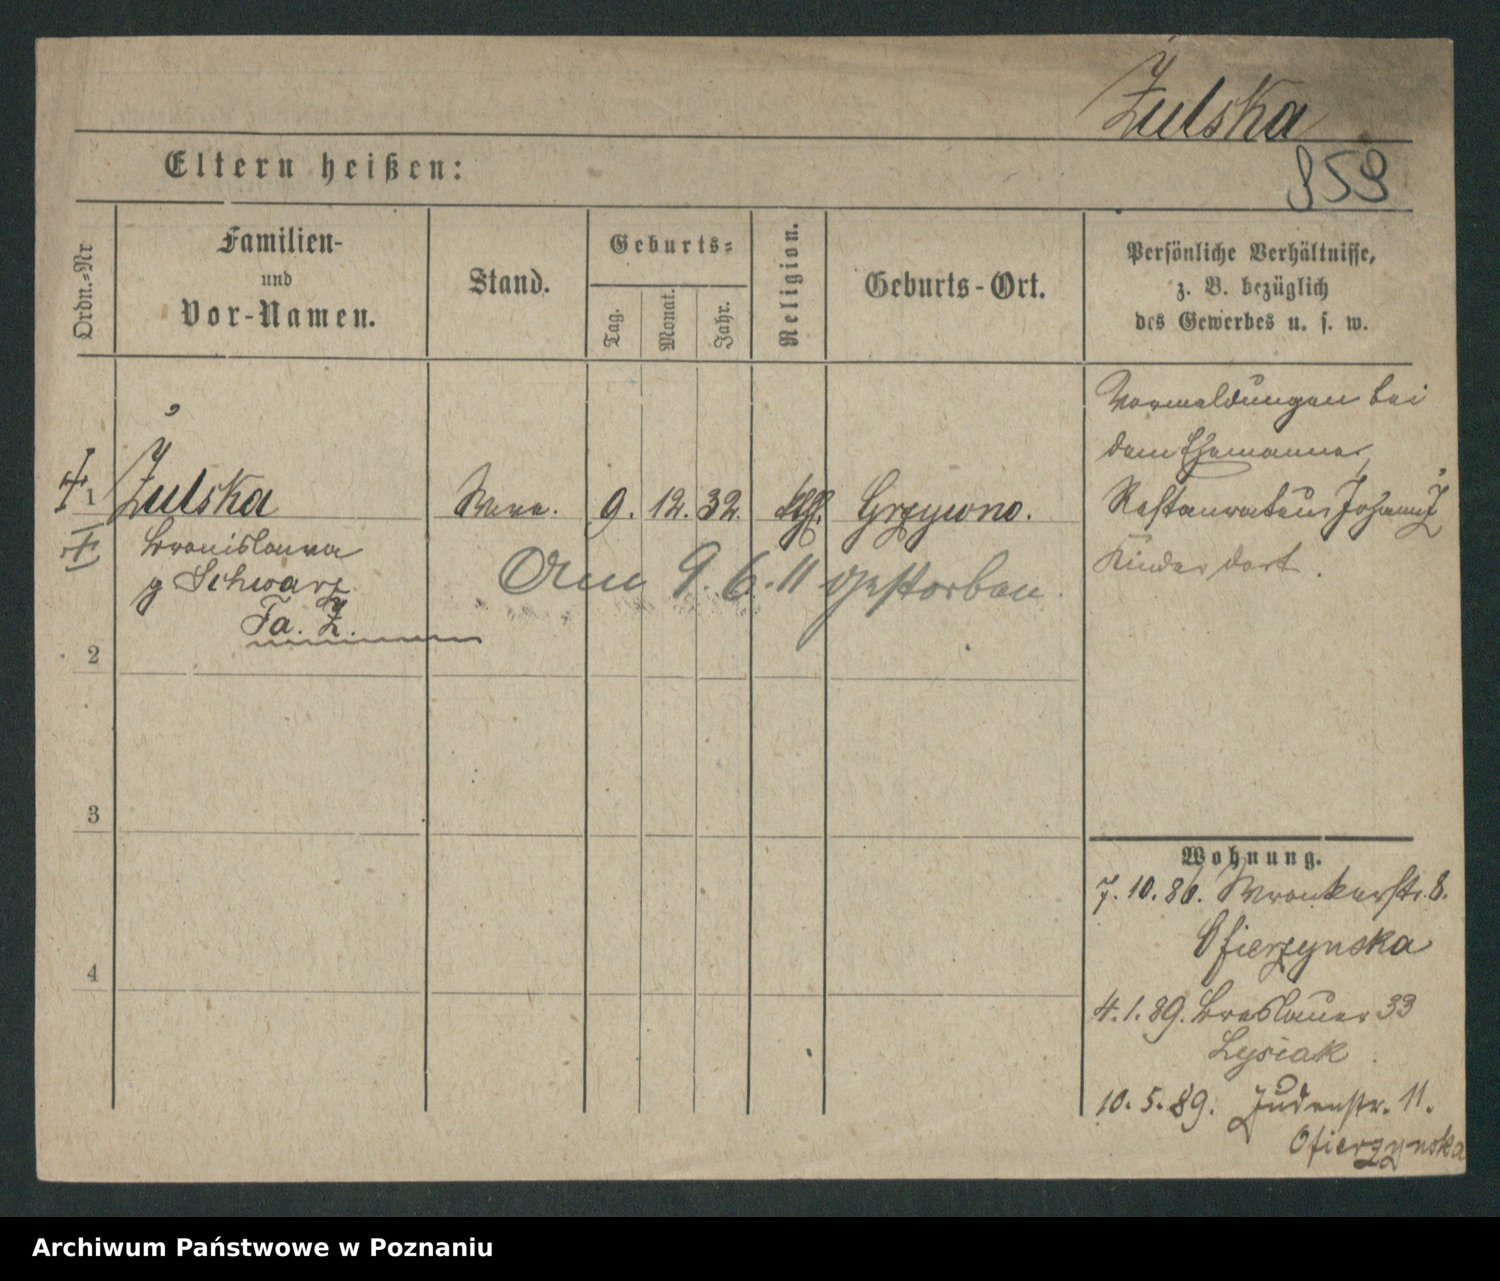 Żulska
859
Eltern heißen:
Ordn.-Nr
Familien-
und
Vor-Namen.
Stand.
Geburts-
Tag.
Monat.
Jahr.
Religion.
Geburts-Ort.
Persönliche Verhältnisse,
z. B. bezüglich
des Gewerbes u. s. w.
Vormeldungen bei
dem Ehemanne,
Restaurateur Johann Ż
Kinder dort.
1 Żulska 9. 12. 32. kth. Grzywno.
Bronislawa
g Schwarz
Fa. Ż.
Am 9. 6. 11 gestorben.
2
3
4
Wohnung.
7. 10. 86. Wronkerstr. 8.
Ofierzynska
4. 1. 89. Breslauer 33
Lysiak
10. 5. 89. Judenstr. 11.
Ofierzynska
Archiwum Państwowe w Poznaniu